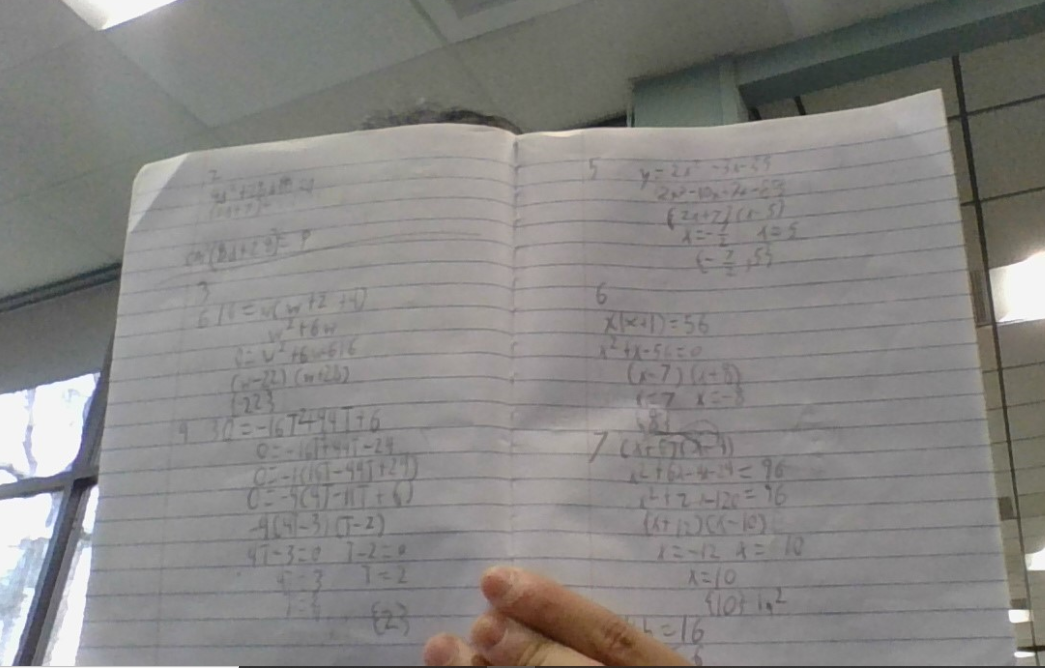 2
3
616 = w(w+2+4)
w²+6w
0=w²+6w-616
(w-22)(w+28)
{22}
4 30=-16T²+44T+6
0=-16T+44T-24
0=-1(16T-44T+24)
0=-4(4T-11T+6)
-4(4T-3)(T-2)
4T-3=0 T-2=0
4T=3 T=2
{2}
5 y=2x²-3x-35
2x²-10x+7x-35
(2x+7)(x-5)
x=-7/2 x=5
{-7/2, 5}
6
x(x+1)=56
x²+x-56=0
(x-7)(x+8)
x=7 x=-8
7 (x+6)(x-4)
x²+6x-4x-24=96
x²+2x-120=96
(x+12)(x-10)
x=-12 x=10
x=10
{10}
=16